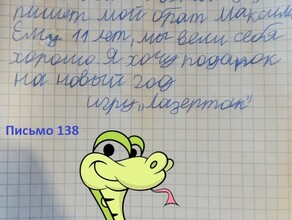 пишет мой брат Максим
Ему 11 лет, мы вели себя
хорошо. Я хочу подарок
на новый год
игру „Лазертак"
Письмо 138